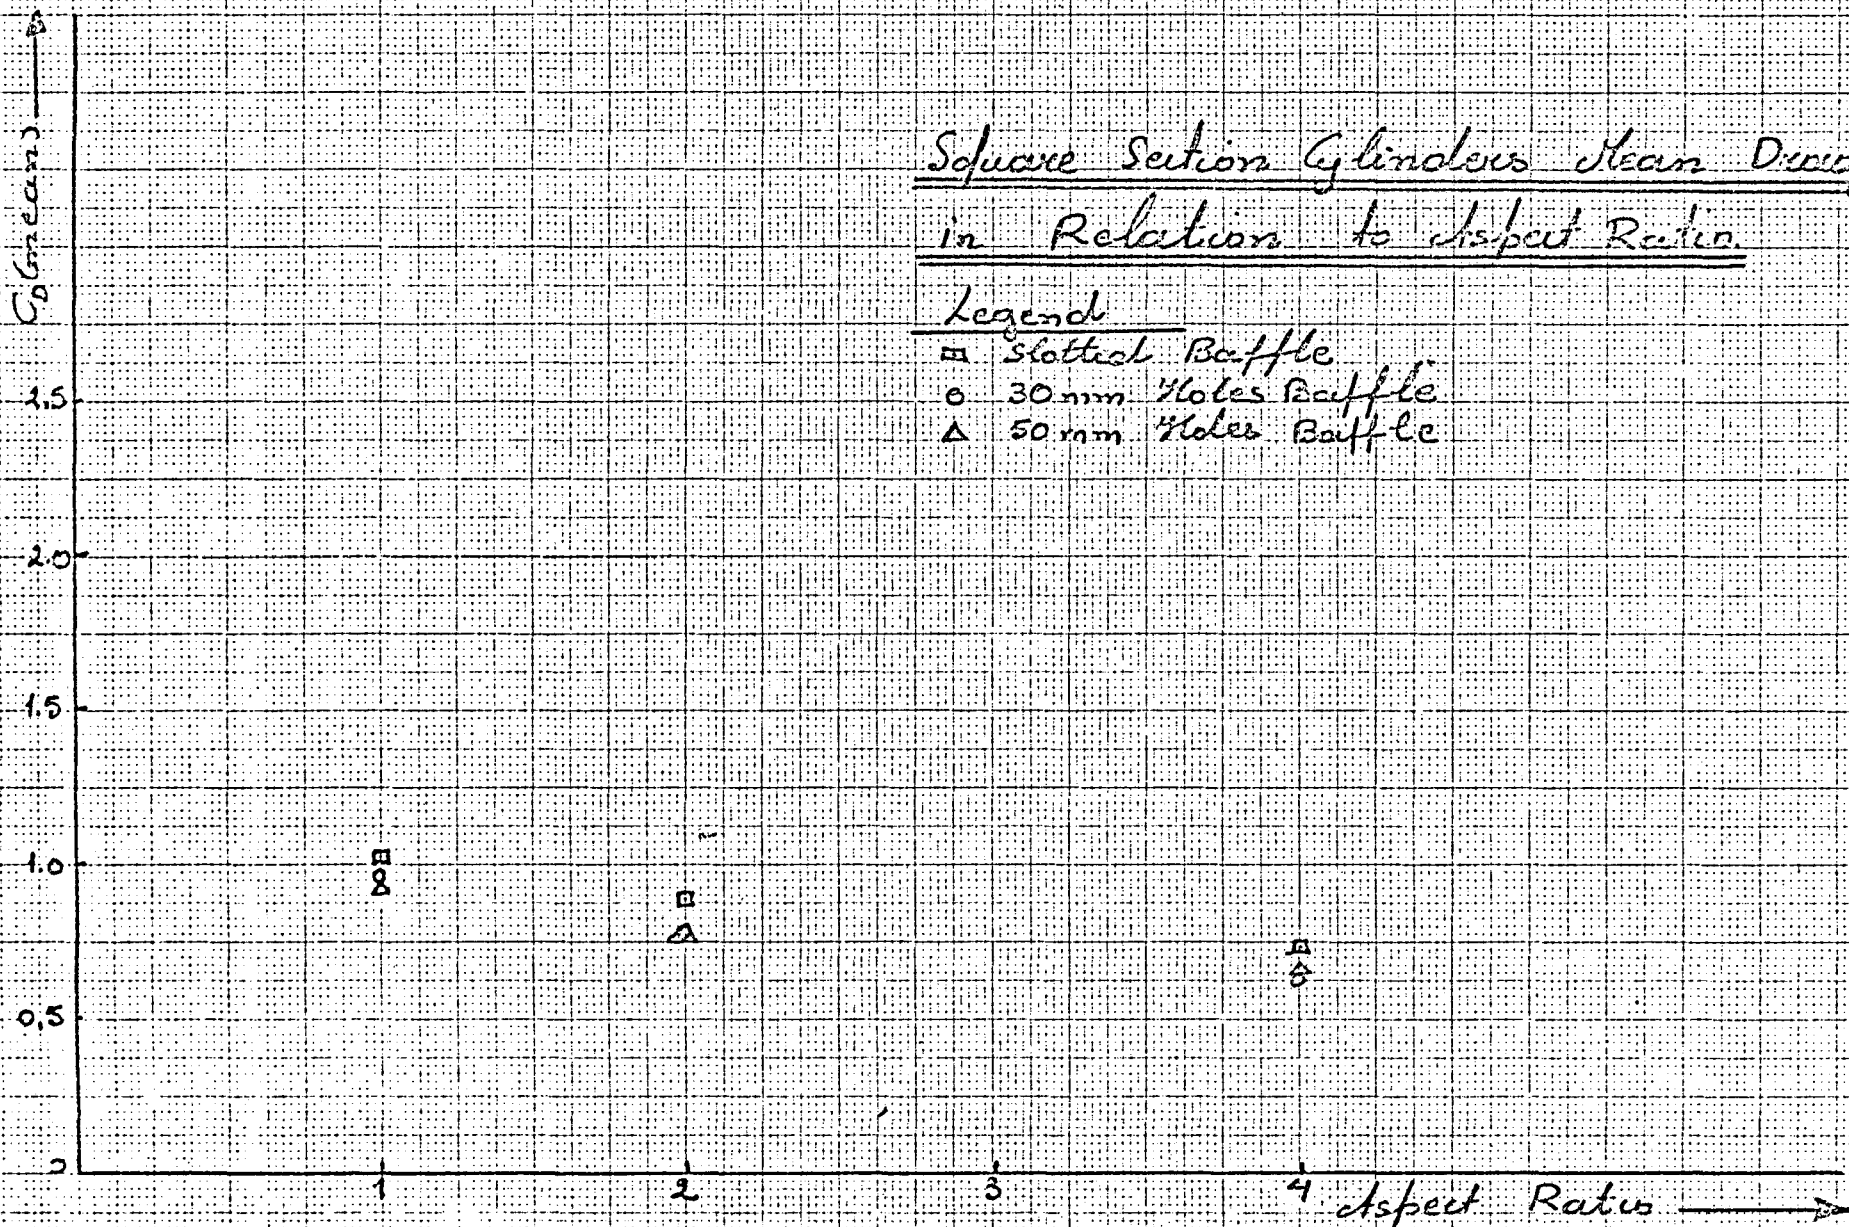 C_D (mean)
Square Section Cylinders Mean Drag
in Relation to Aspect Ratio.
Legend
Slotted Baffle
30 mm Holes Baffle
50 mm Holes Baffle
2.5
2.0
1.5
1.0
0.5
1 2 3 4
Aspect Ratio